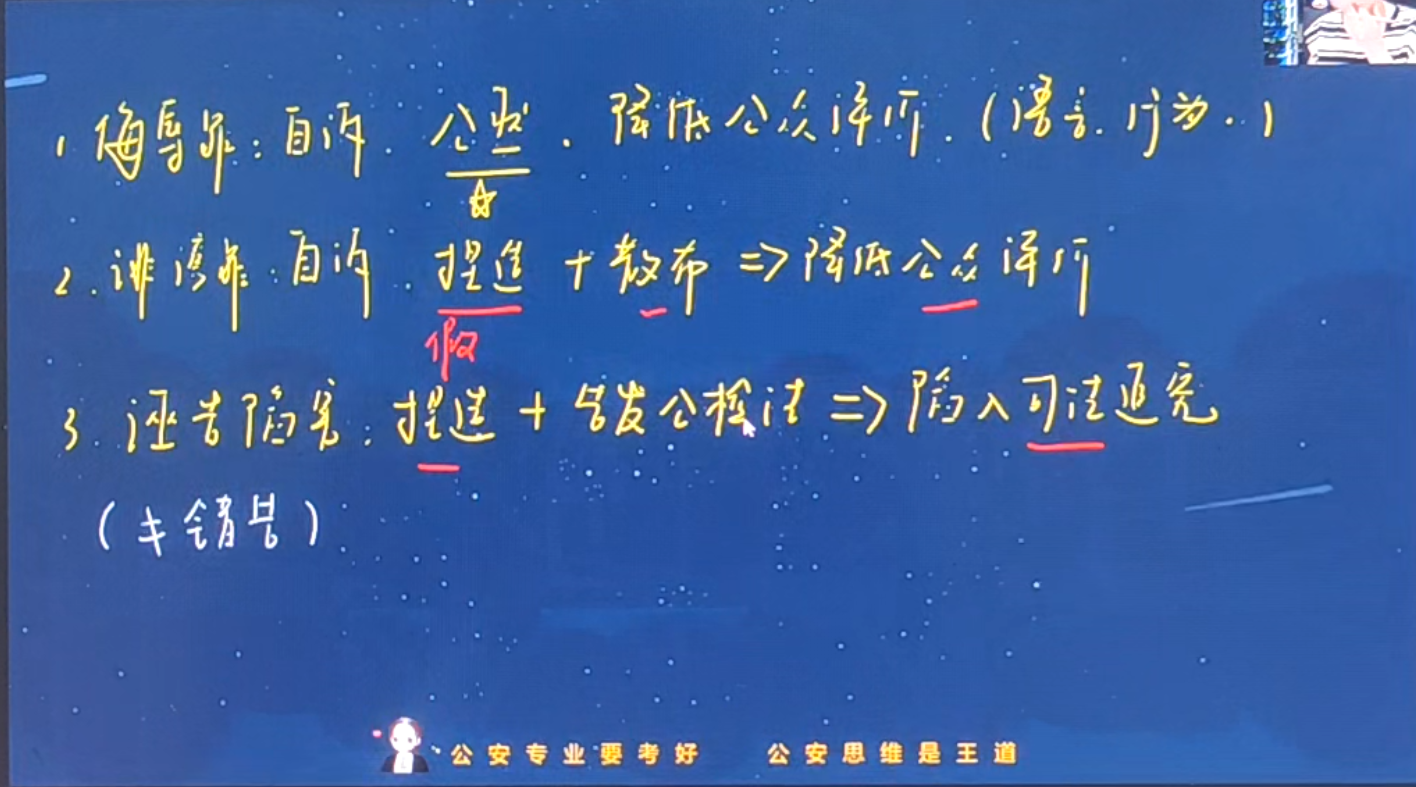 1. 侮辱罪：自诉. 公然. 降低公众评价. (语言. 行为..)
2. 诽谤罪：自诉. 捏造 + 散布 => 降低公众评价
假
3. 诬告陷害：捏造 + 告发公检法 => 陷入司法追究
公安专业要考好 公安思维是王道